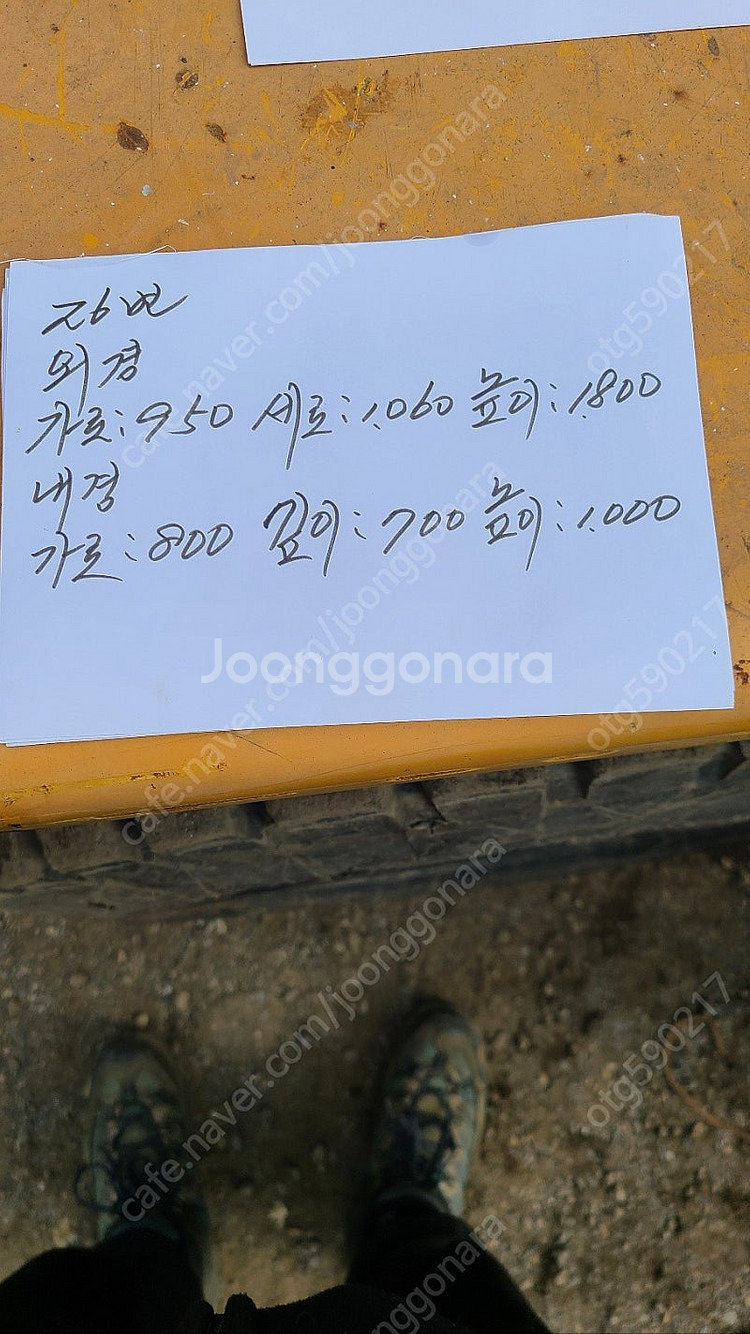 외경
가로: 950 세로: 1,060 높이: 1,800
내경
가로: 800 깊이: 700 높이: 1,000
Joonggonara
cafe.naver.com/joonggonara
otg590217
cafe.naver.com/joonggonara
otg590217
cafe.naver.com/joonggonara
otg590217
joonggonara